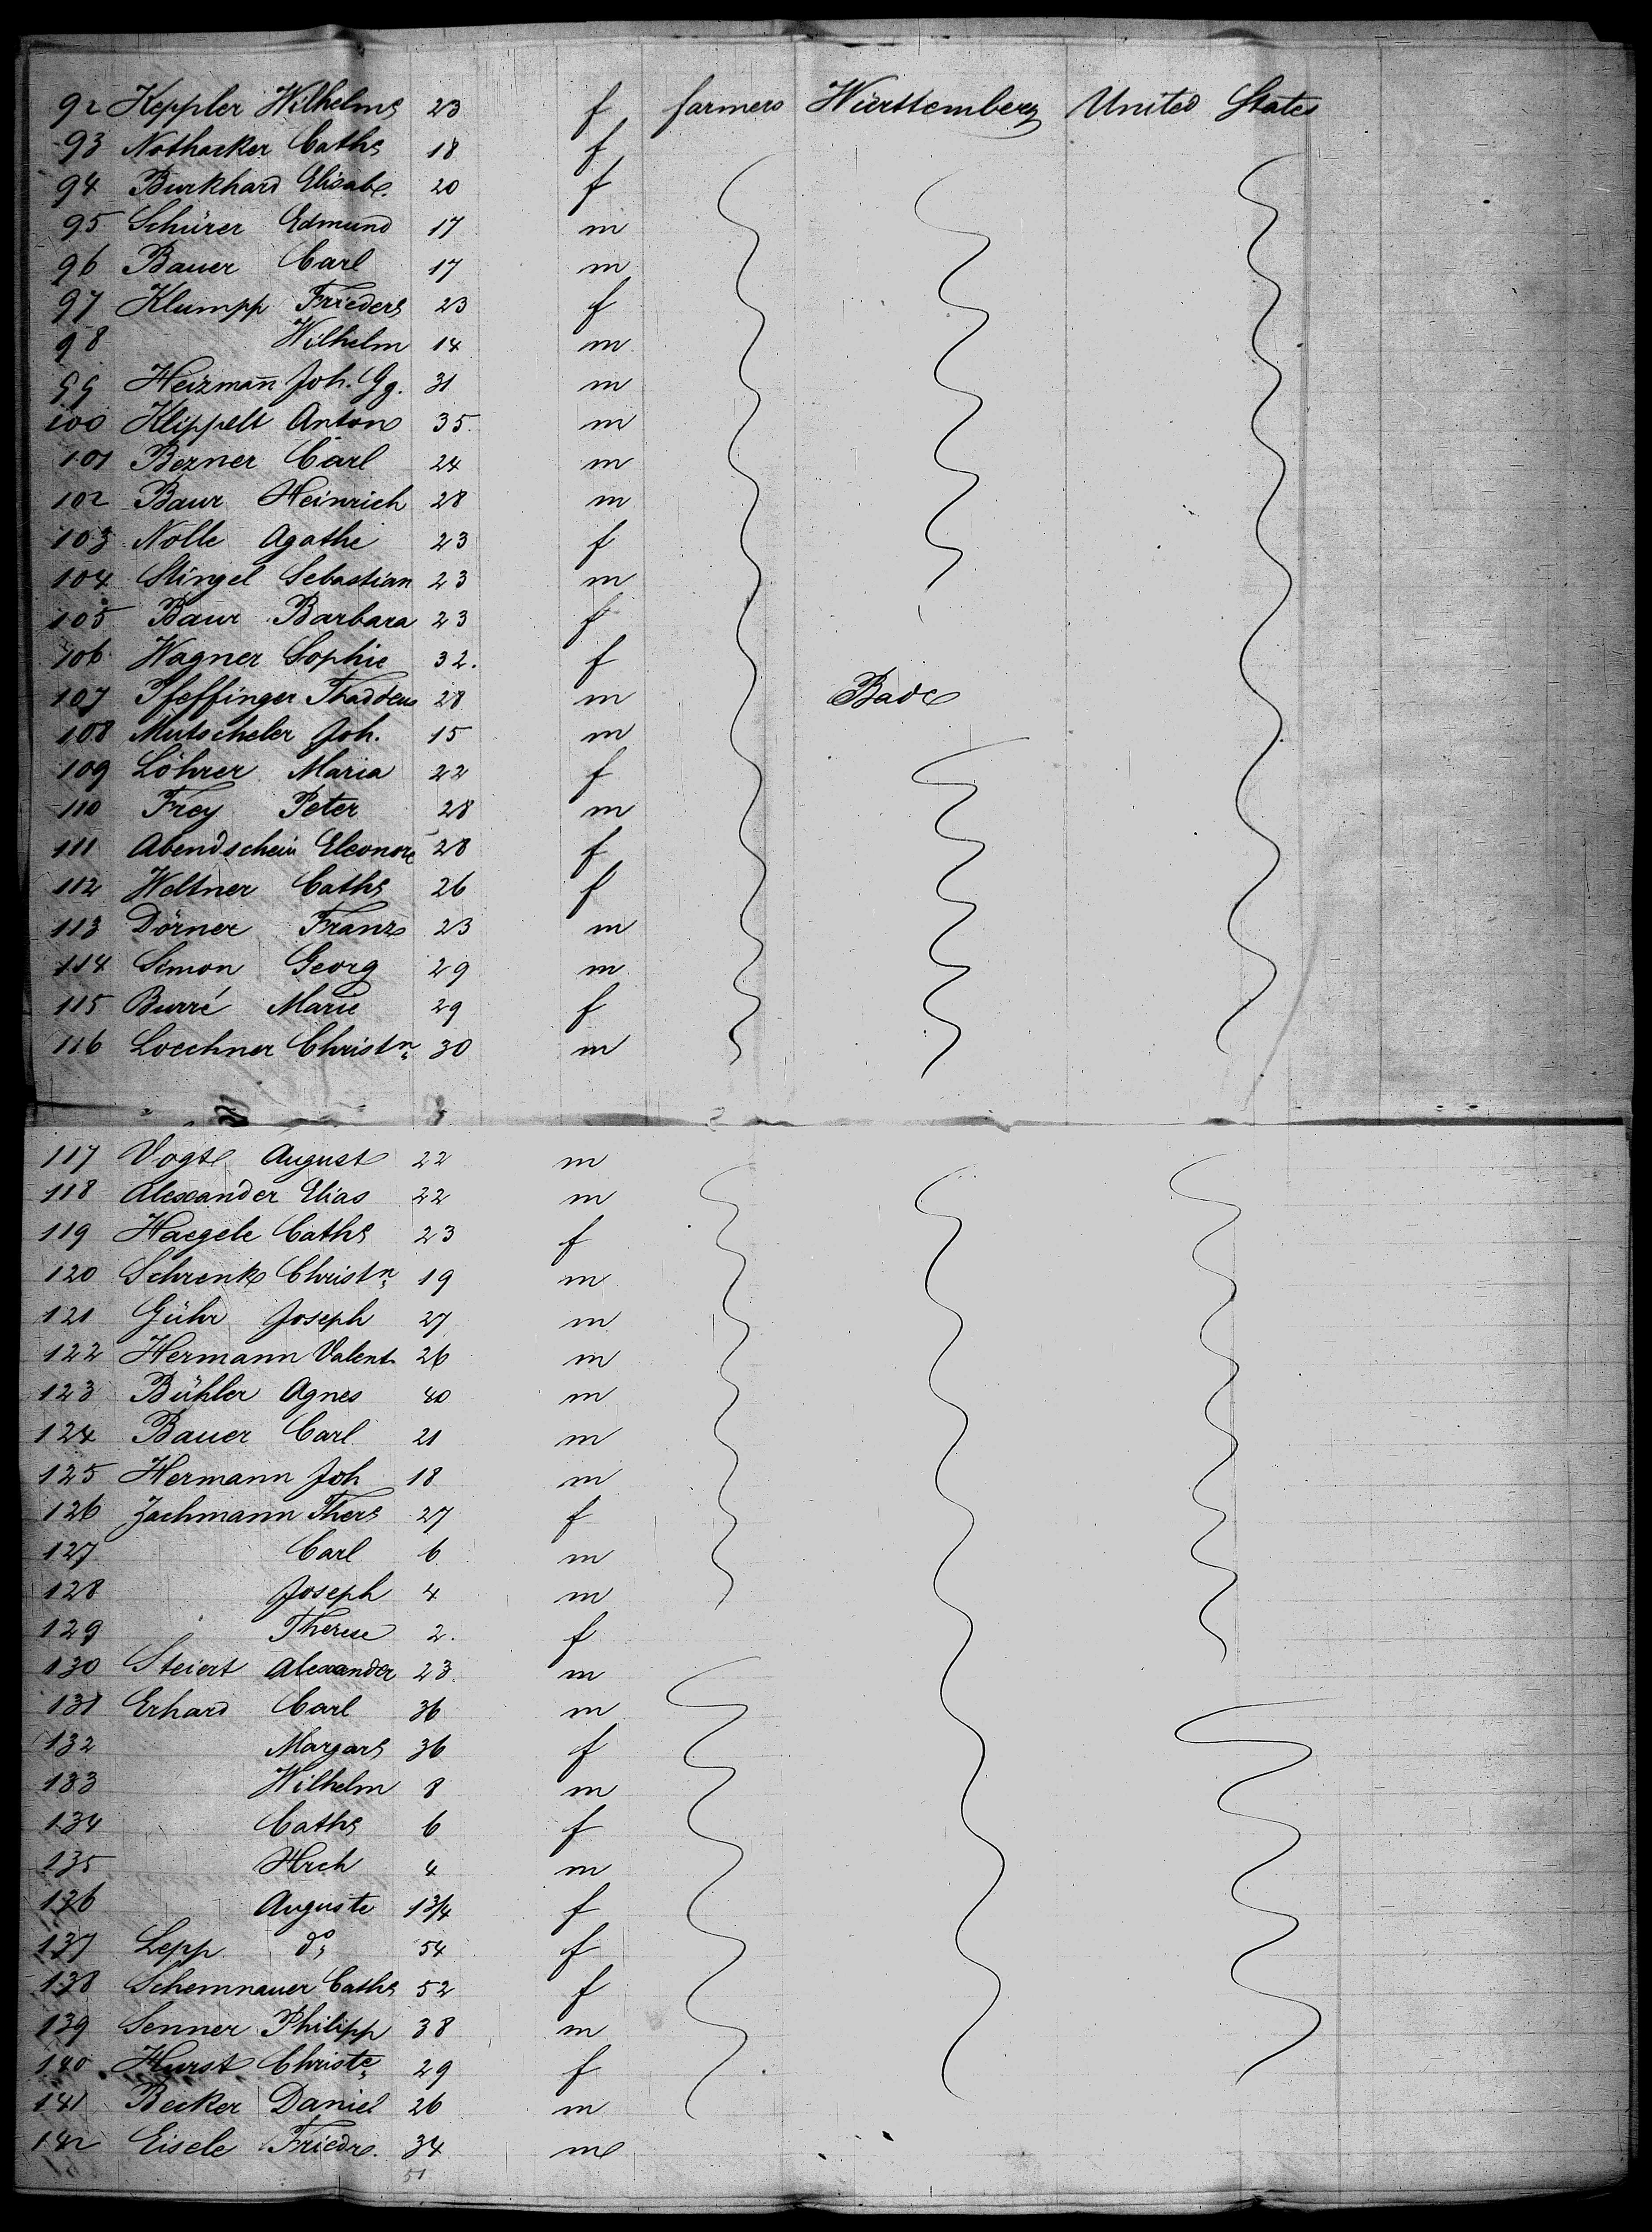 92 Keppler Wilhelme 23 f farmers Württemberg United States
93 Nothacker Cathe 18 f
94 Burkhard Elisabe. 20 f
95 Schürer Edmund 17 m
96 Bauer Carl 17 m
97 Klumpp Friedere 23 f
98 Wilhelm 14 m
99 Heizmañ Joh. Gg. 31 m
100 Klippelt Anton 35. m
101 Bezner Carl 24 m
102 Baur Heinrich 28 m
103 Nolle Agathe 23 f
104 Stingel Sebastian 23 m
105 Baur Barbara 23 f
106 Wagner Sophie 32. f
107 Pfeffinger Thaddeus 28 m Bade
108 Mutscheler Joh. 15 m
109 Löhrer Maria 22 f
110 Frey Peter 28 m
111 Abendschein Eleonore 28 f
112 Weltner Cathe 26 f
113 Dörner Franz 23 m
114 Simon Georg 29 m
115 Burré Marie 29 f
116 Loechner Christn 30 m
117 Vogt August 22 m
118 Alexander Elias 22 m
119 Haegele Cathe 23 f
120 Schrenk Christn 19 m
121 Gühr Joseph 27 m
122 Hermann Valent. 26 m
123 Bühler Agnes 40 m
124 Bauer Carl 21 m
125 Hermann Joh 18 m
126 Jachmann There 27 f
127 Carl 6 m
128 Joseph 4 m
129 Therese 2. f
130 Steiert Alexander 23. m
131 Erhard Carl 36 m
132 Margare 36 f
133 Wilhelm 8 m
134 Cathe 6 f
135 Hrch 4 m
136 Auguste 13/4 f
137 Lepp do 54 f
138 Schemnauer Cathe 52 f
139 Senner Philipp 38 m
140 Hurst Christe 29 f
141 Becker Daniel 26 m
142 Eisele Friedr. 34 m
51